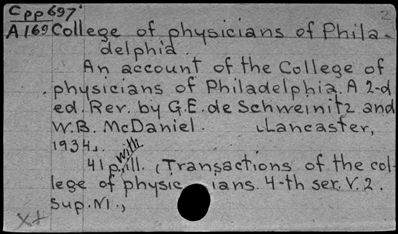 Cpp697
A169 College of physicians of Phila-
delphia.
An account of the College of
physicians of Philadelphia. A 2-d
ed. Rev. by G.E. de Schweinitz and
W.B. McDaniel. Lancaster,
1934.
41 p. with ill. (Transactions of the col-
lege of physicians. 4-th ser. V. 2.
Sup. N1.,